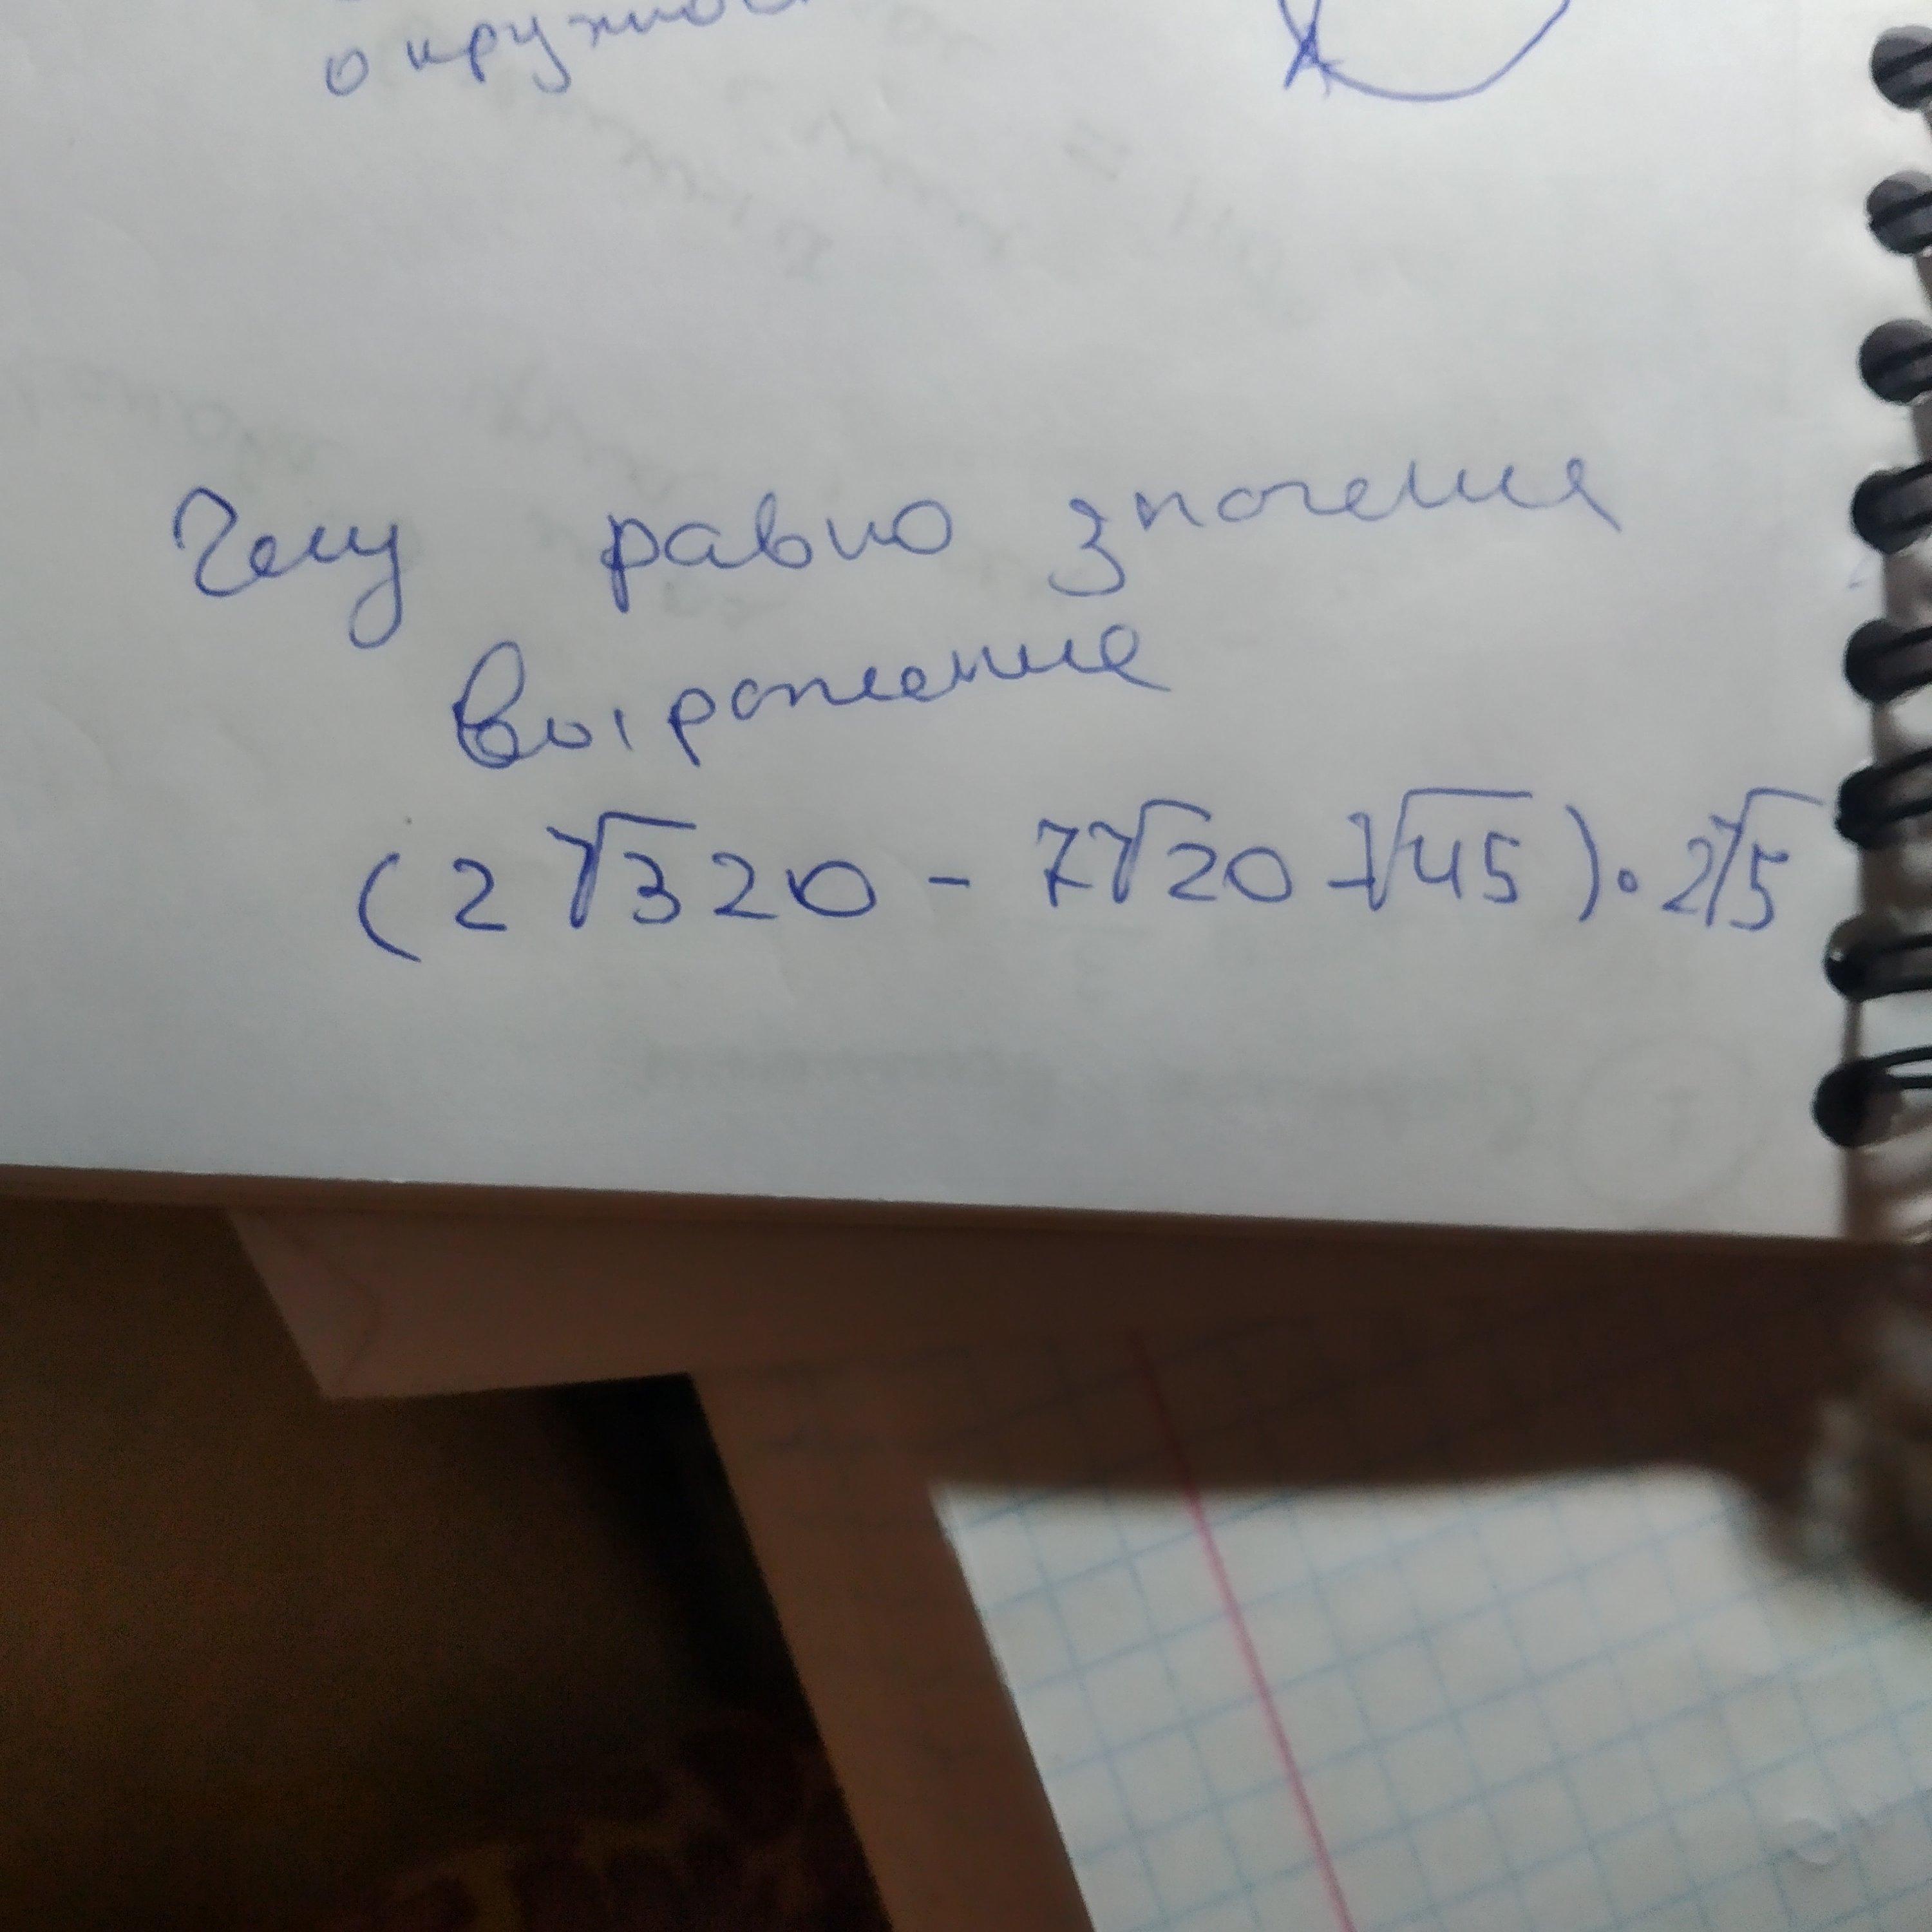 Чему равно значение
выражение
(2√320 - 7√20 - √45) · 2√5